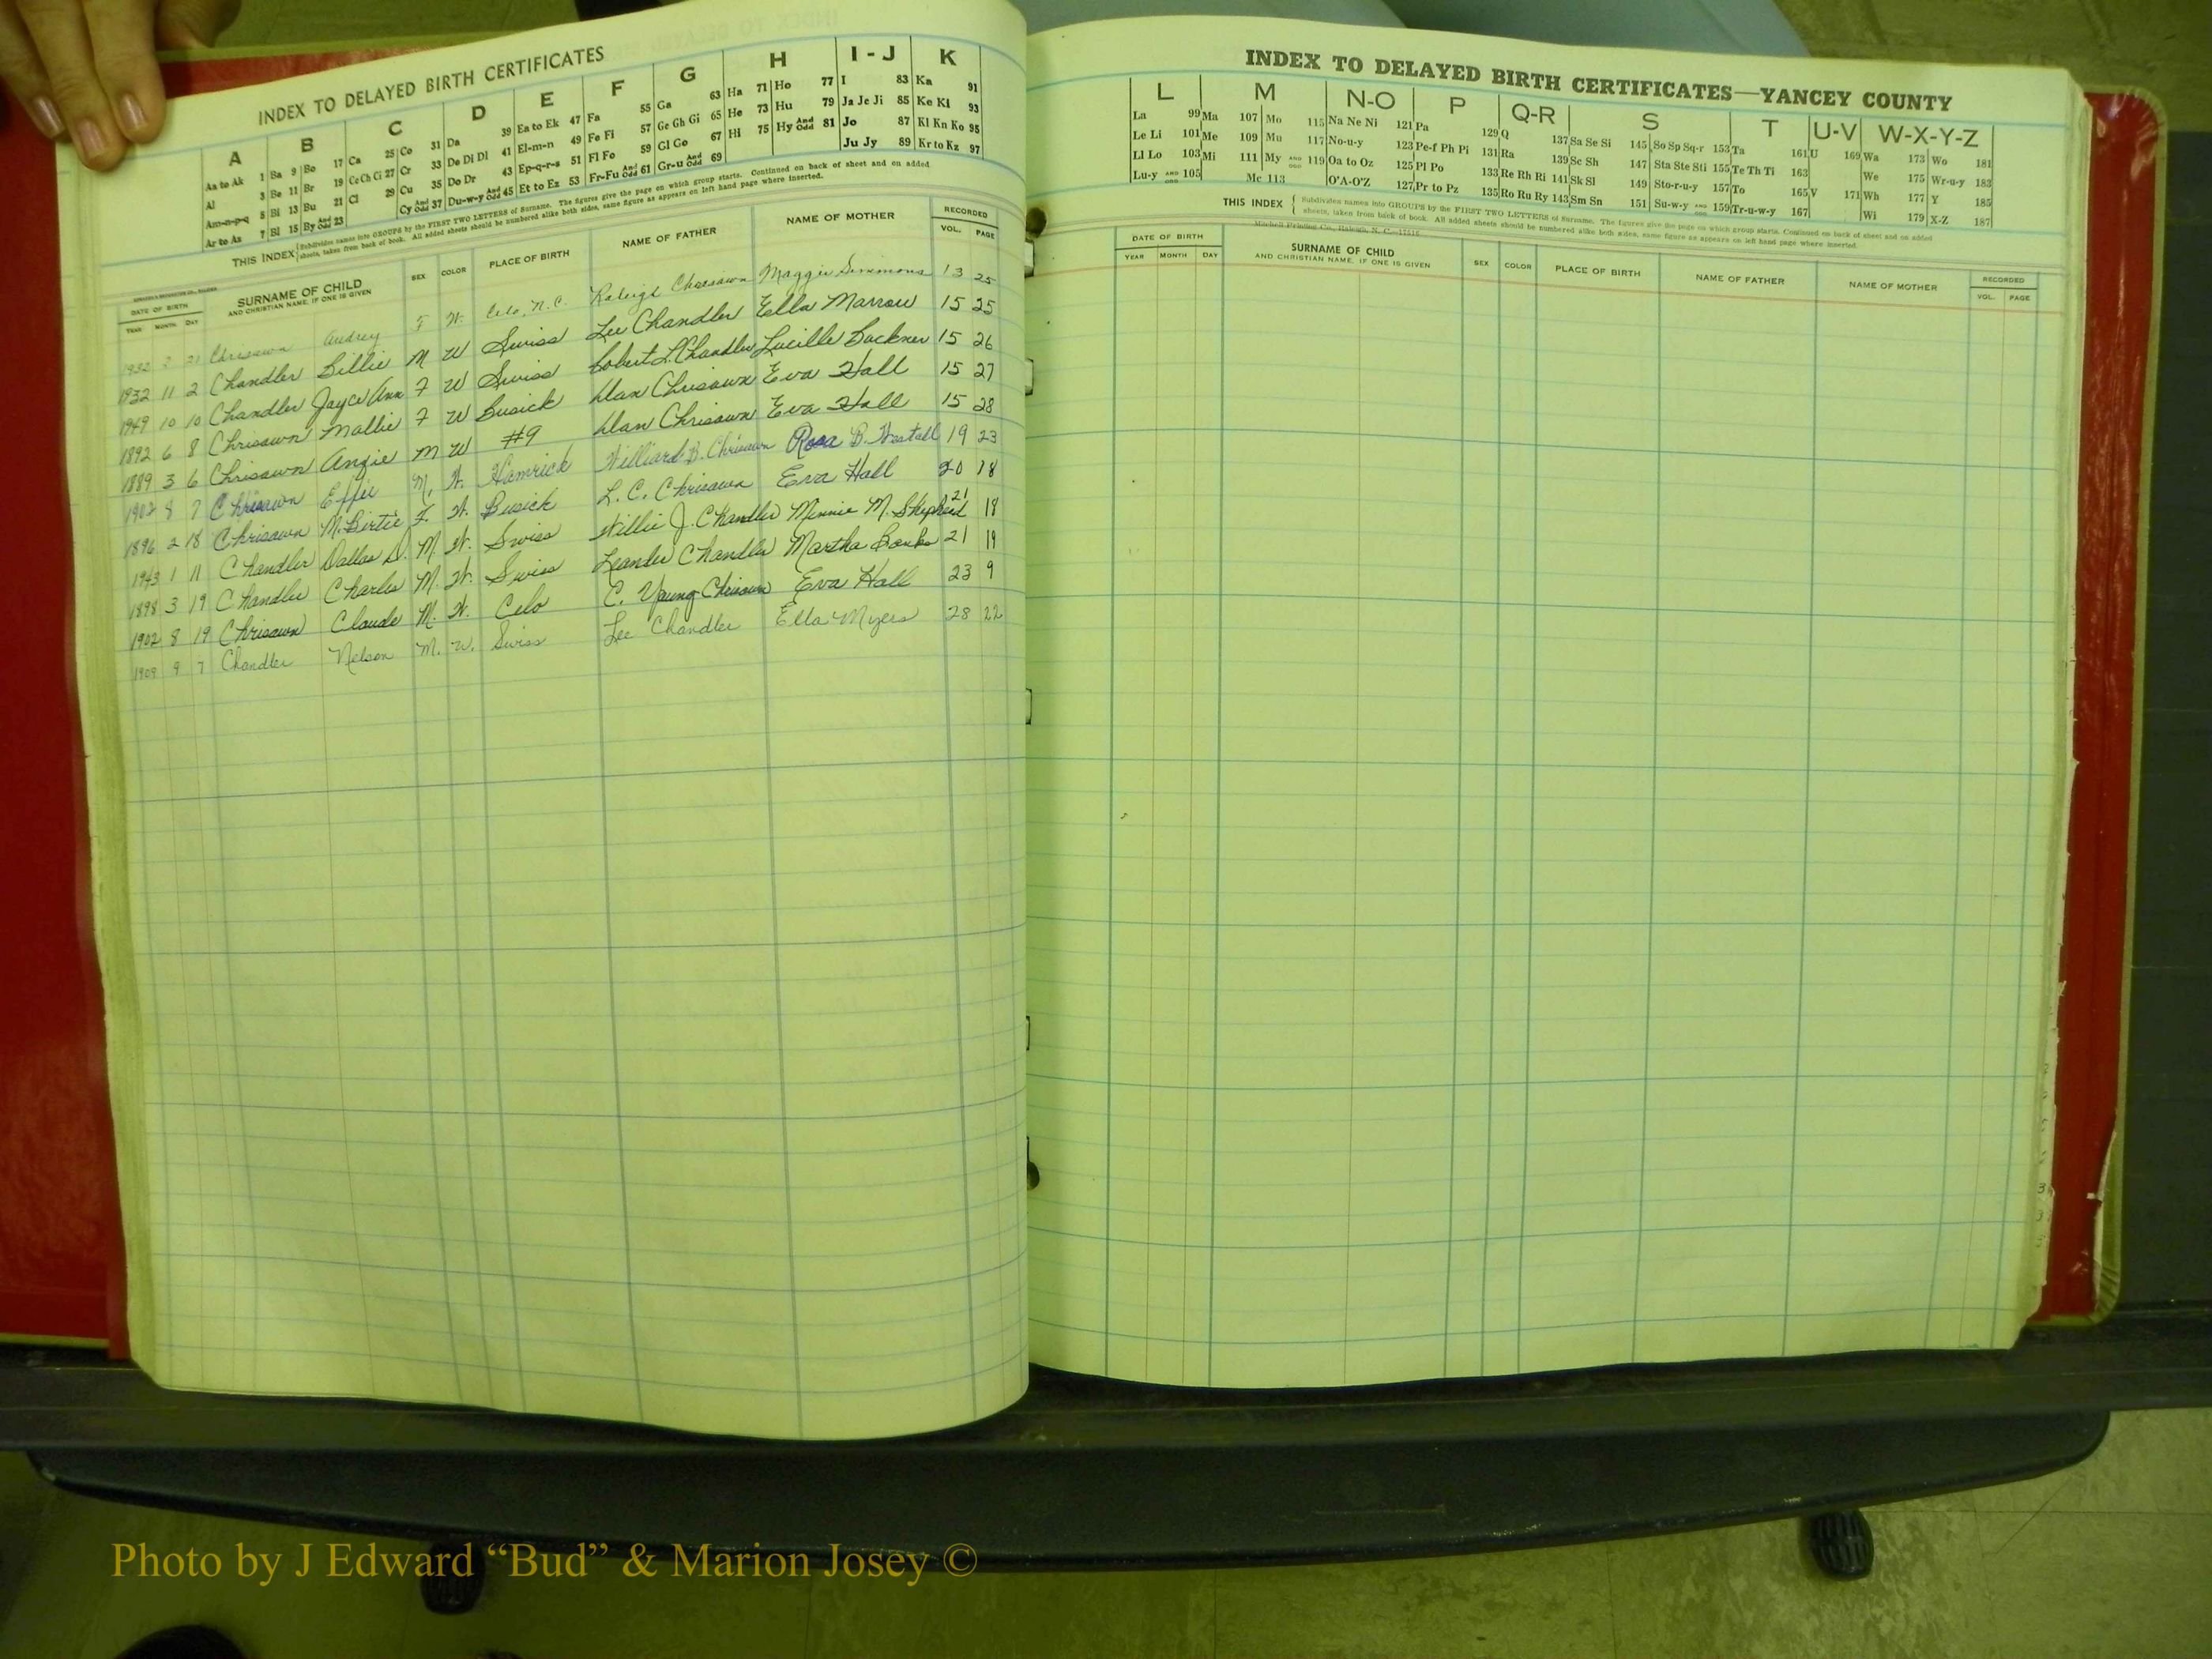 INDEX TO DELAYED BIRTH CERTIFICATES
A B C D E F G H I - J K
Aa to Ak 1 Ba 9 Bo 17 Ca 25 Co 31 Da 39 Ea to Ek 47 Fa 55 Ga 63 Ha 71 Ho 77 I 83 Ka 91
Al 3 Be 11 Br 19 Ce Ch Ci 27 Cr 33 De Di Dl 41 El-m-n 49 Fe Fi 57 Ge Gh Gi 65 He 73 Hu 79 Ja Je Ji 85 Ke Ki 93
Am-n-p-q 5 Bi 13 Bu 21 Cl 29 Cu 35 Do Dr 43 Ep-q-r-s 51 Fl Fo 59 Gl Go 67 Hi 75 Hy And Odd 81 Jo 87 Kl Kn Ko 95
Ar to Az 7 Bl 15 By And Odd 23 Cy And Odd 37 Du-w-y And Odd 45 Et to Ez 53 Fr-Fu And Odd 61 Gr-u And Odd 69 Ju Jy 89 Kr to Kz 97
THIS INDEX Subdivides names into GROUPS by the FIRST TWO LETTERS of Surname. The figures give the page on which group starts. Continued on back of sheet and on added
sheets, taken from back of book. All added sheets should be numbered alike both sides, same figure as appears on left hand page where inserted.
DATE OF BIRTH SURNAME OF CHILD SEX COLOR PLACE OF BIRTH NAME OF FATHER NAME OF MOTHER RECORDED
YEAR MONTH DAY AND CHRISTIAN NAME, IF ONE IS GIVEN VOL. PAGE
1932 2 21 Chrisawn Audrey F W. Celo, N.C. Raleigh Chrisawn Maggie Simmons 13 25
1932 11 2 Chandler Billie M W Swiss Lee Chandler Ella Marrow 15 25
1949 10 10 Chandler Joyce Ann F W Swiss Robert L. Chandler Lucille Buckner 15 26
1892 6 8 Chrisawn Mollie F W Busick Dan Chrisawn Eva Hall 15 27
1889 3 6 Chrisawn Angie M W #9 Dan Chrisawn Eva Hall 15 28
1902 8 7 Chrisawn Effie M. W. Hamrick Williard B. Chrisawn Rosa B. Westall 19 23
1896 2 18 Chrisawn M. Birtie F. W. Busick L. C. Chrisawn Eva Hall 20 18
1943 1 11 Chandler Dallas D. M. W. Swiss Willie J. Chandler Minnie M. Shepherd 21 18
1898 3 19 Chandler Charles M. W. Swiss Leander Chandler Martha Banks 21 19
1902 8 19 Chrisawn Claude M. W. Celo E. Young Chrisawn Eva Hall 23 9
1909 9 7 Chandler Nelson M. W. Swiss Lee Chandler Ella Myers 28 22
INDEX TO DELAYED BIRTH CERTIFICATES—YANCEY COUNTY
L M N-O P Q-R S T U-V W-X-Y-Z
La 99 Ma 107 Mo 115 Na Ne Ni 121 Pa 129 Q 137 Sa Se Si 145 So Sp Sq-r 153 Ta 161 U 169 Wa 173 Wo 181
Le Li 101 Me 109 Mu 117 No-u-y 123 Pe-f Ph Pi 131 Ra 139 Sc Sh 147 Sta Ste Sti 155 Te Th Ti 163 We 175 Wr-u-y 183
Ll Lo 103 Mi 111 My AND ODD 119 Oa to Oz 125 Pl Po 133 Re Rh Ri 141 Sk Sl 149 Sto-r-u-y 157 To 165 V 171 Wh 177 Y 185
Lu-y AND ODD 105 Mc 113 O'A-O'Z 127 Pr to Pz 135 Ro Ru Ry 143 Sm Sn 151 Su-w-y AND ODD 159 Tr-u-w-y 167 Wi 179 X-Z 187
THIS INDEX Subdivides names into GROUPS by the FIRST TWO LETTERS of Surname. The figures give the page on which group starts. Continued on back of sheet and on added
sheets, taken from back of book. All added sheets should be numbered alike both sides, same figure as appears on left hand page where inserted.
Mitchell Printing Co., Raleigh, N. C.
DATE OF BIRTH SURNAME OF CHILD SEX COLOR PLACE OF BIRTH NAME OF FATHER NAME OF MOTHER RECORDED
YEAR MONTH DAY AND CHRISTIAN NAME, IF ONE IS GIVEN VOL. PAGE
Photo by J Edward “Bud” & Marion Josey ©